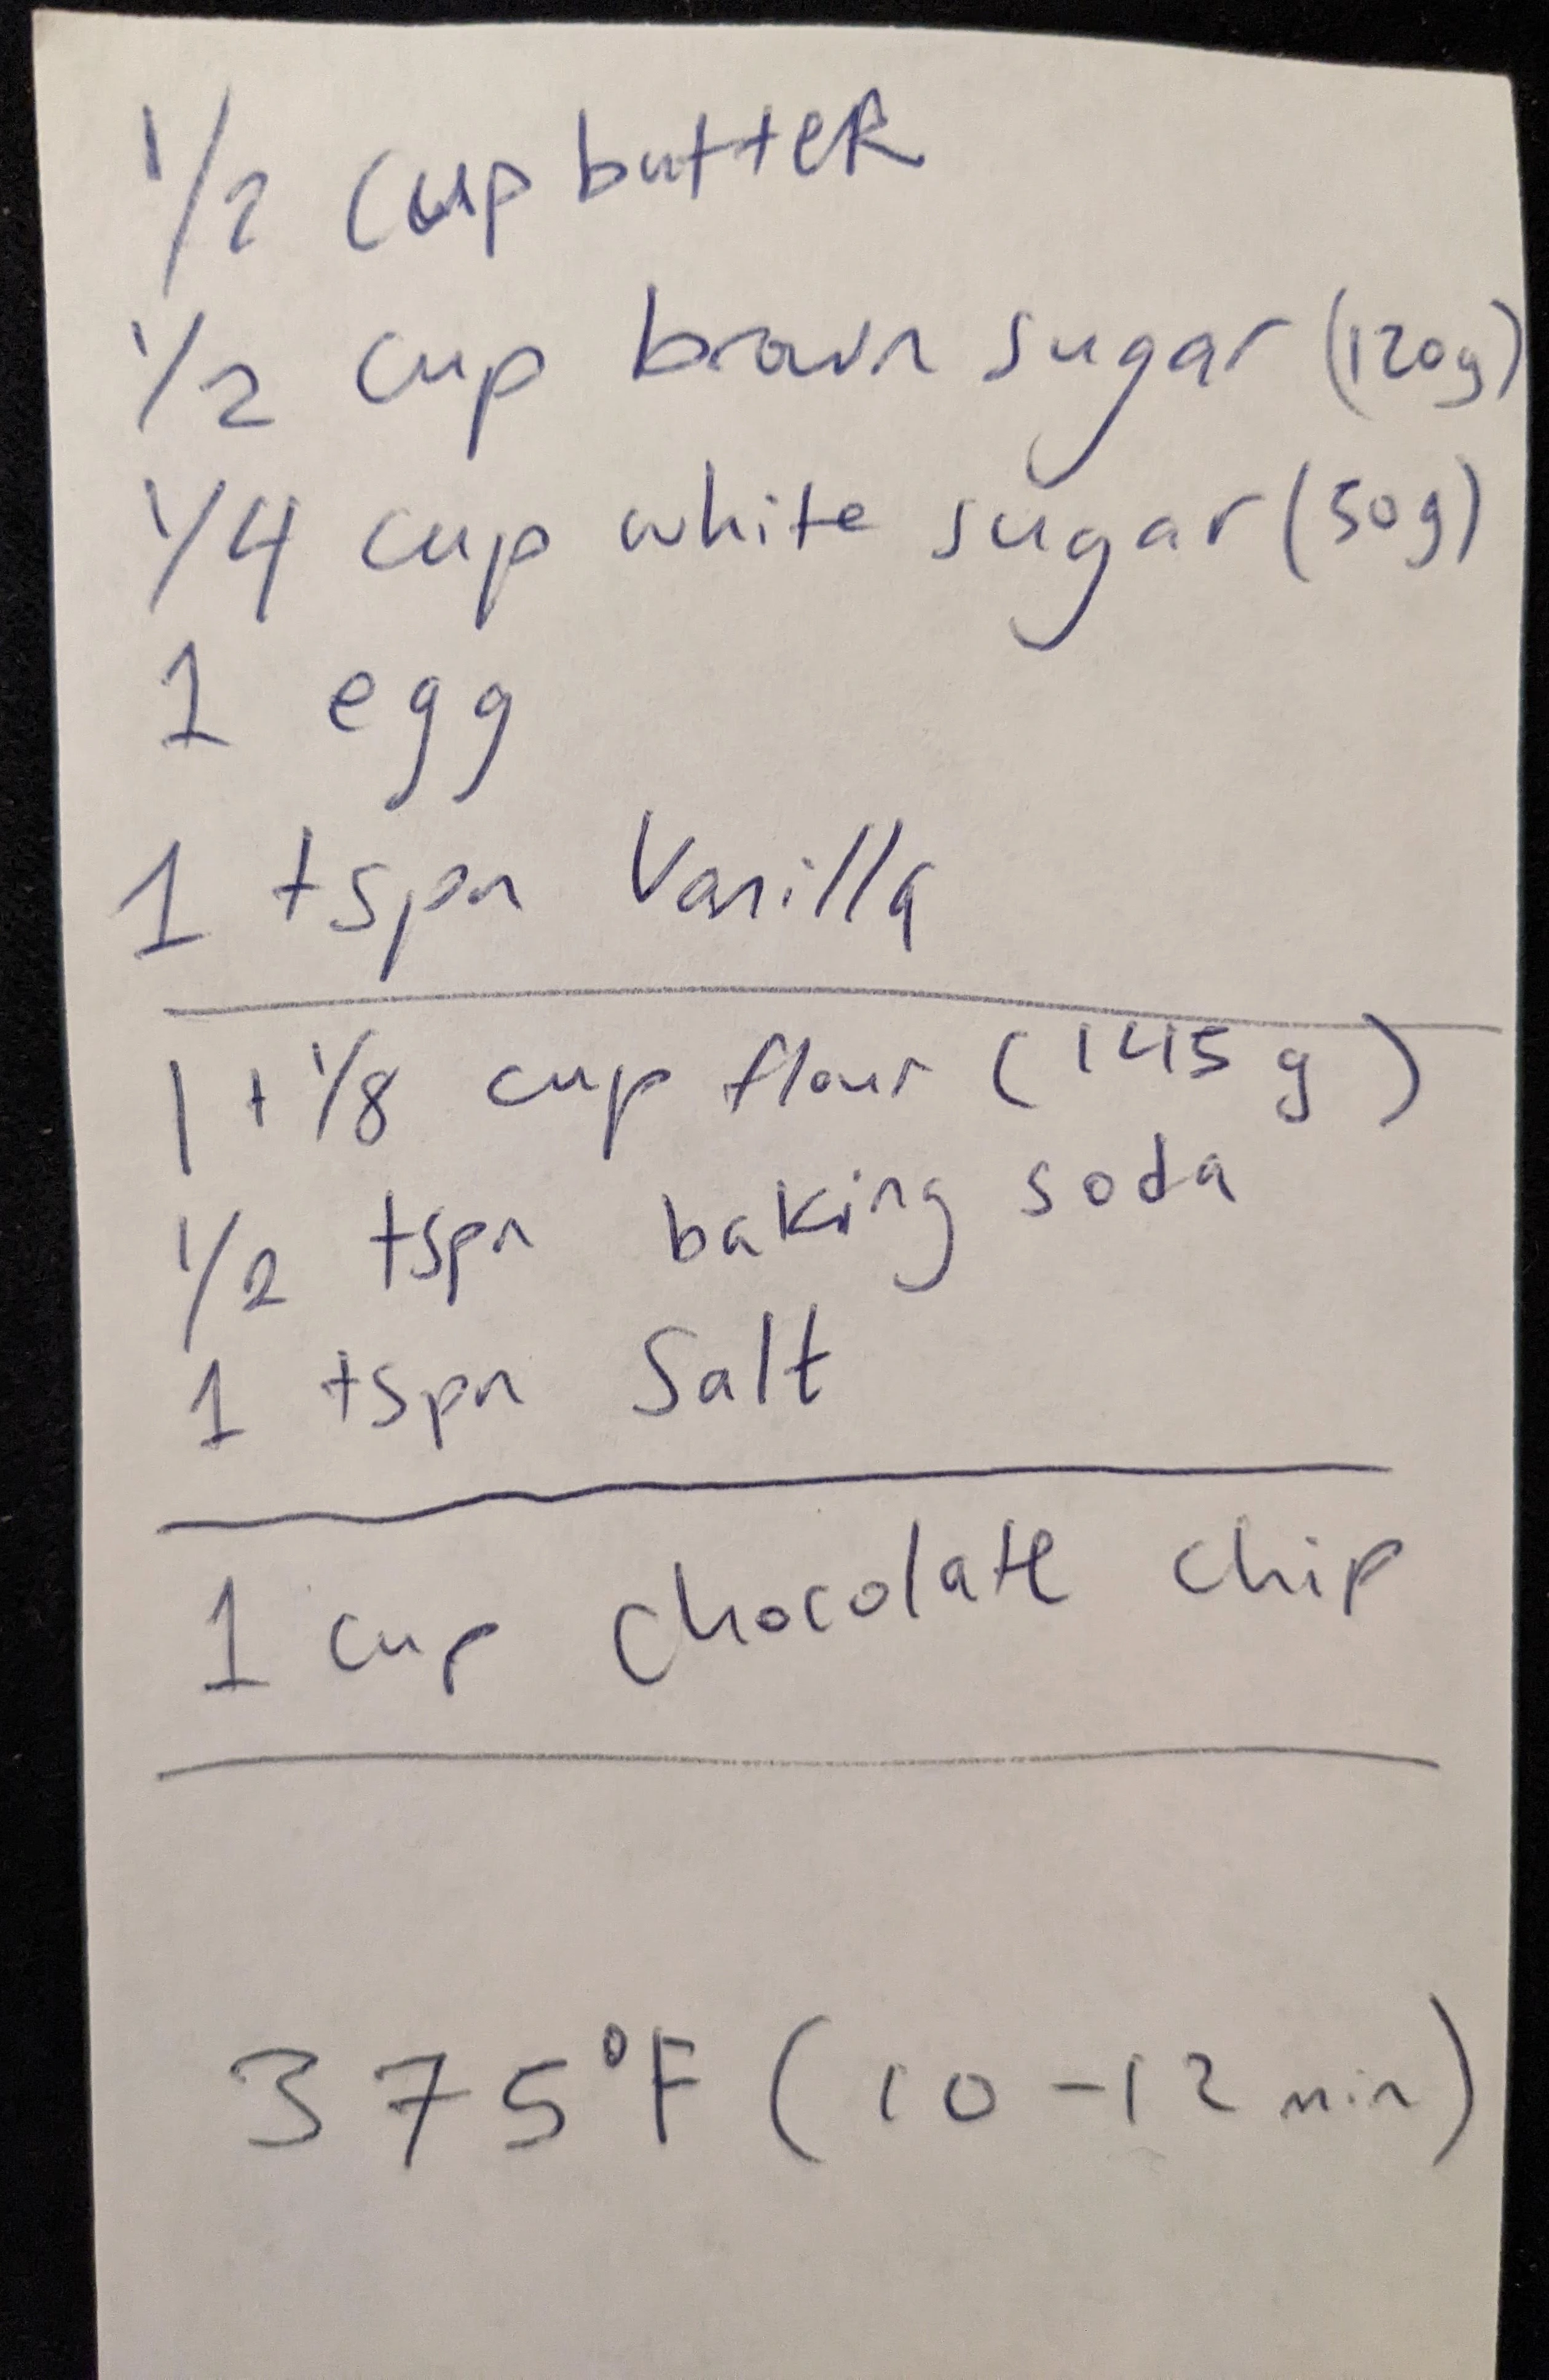 1/2 cup butter
1/2 cup brown sugar (120g)
1/4 cup white sugar (50g)
1 egg
1 tspn Vanilla
1 + 1/8 cup flour (145 g)
1/2 tspn baking soda
1 tspn Salt
1 cup chocolate chip
375°F (10-12 min)